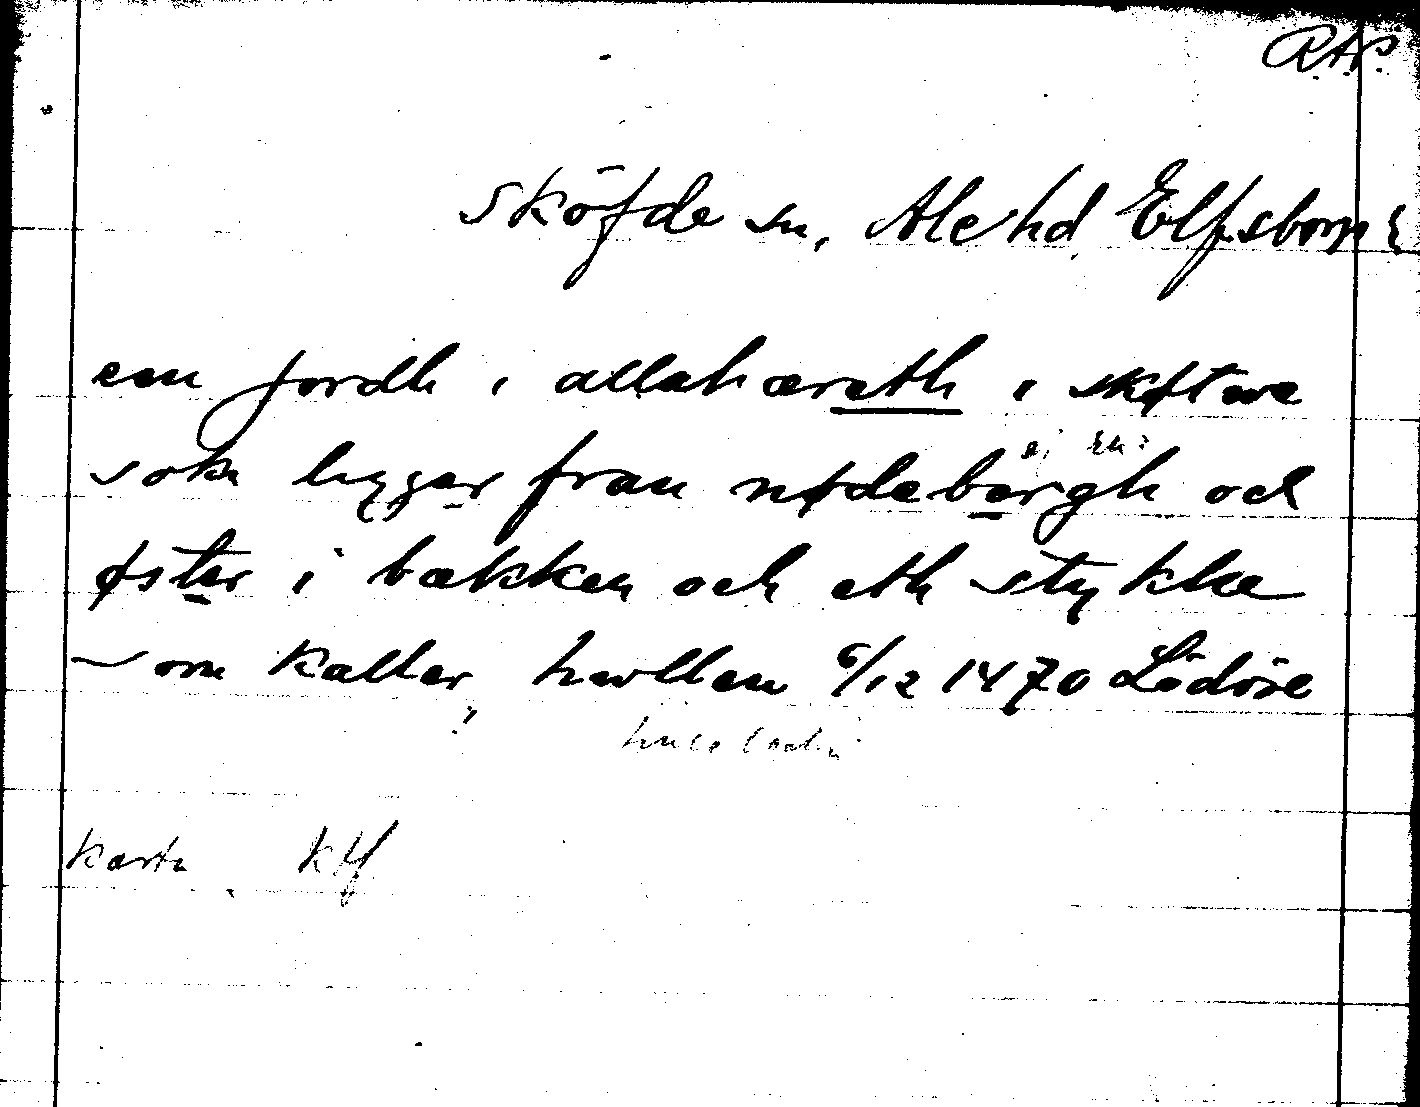 R.A.P.
Sköfde sn, Ale hd Elfsborg
een jordh i allahæreth i skøtwe
sokn liggær fran nødebærgh och
øster i bækken och eth stykke
som kaller hwllen 6/12 1470 Lödöse
Karta